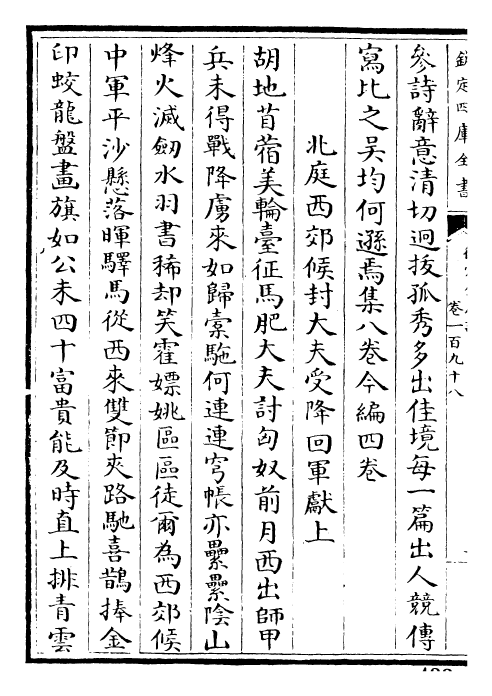 欽定四庫全書
卷一百九十八
參詩辭意清切迥拔孤秀多出佳境每一篇出人競傳
寫比之吳均何遜焉集八卷今編四卷
北庭西郊候封大夫受降回軍獻上
胡地苜蓿美輪臺征馬肥大夫討匈奴前月西出師甲
兵未得戰降虜來如歸橐駞何連連穹帳亦纍纍陰山
烽火滅劒水羽書稀却笑霍嫖姚區區徒爾為西郊候
中軍平沙懸落暉驛馬從西來雙節夾路馳喜鵲捧金
印蛟龍盤畫旗如公未四十富貴能及時直上排青雲